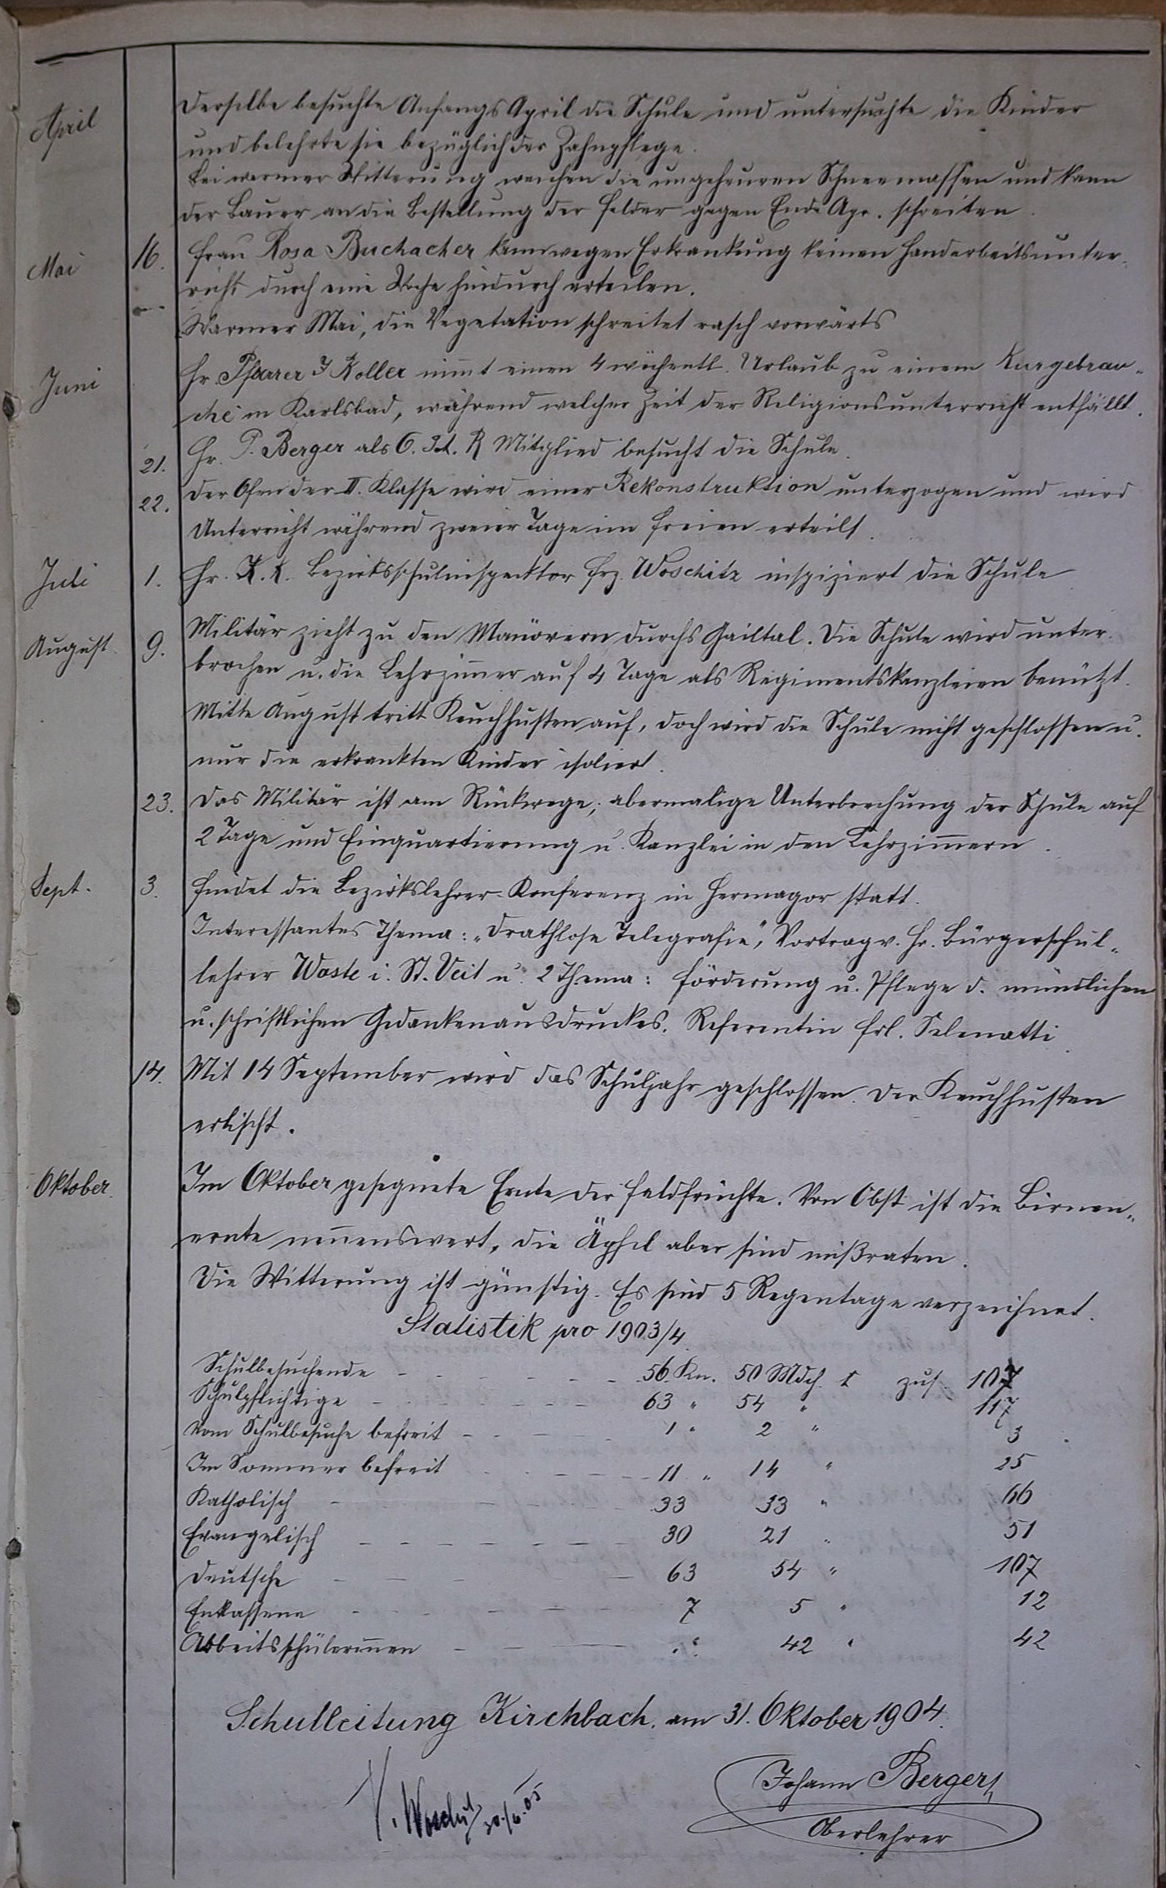 April
Derselbe besuchte Anfangs April die Schule und untersuchte die Kinder
und belehrte sie bezüglich der Zahnpflege.
Bei warmer Witterung weichen die ungeheuren Schneemassen und kann
der Bauer an die Bestellung der Felder gegen Ende Apr. schreiten.
Mai 16. Frau Rosa Buchacher kann wegen Erkrankung keinen Handarbeitsunter-
richt durch eine Woche hindurch erteilen.
Warmer Mai, die Vegetation schreitet rasch vorwärts
Juni Hr. Pfarrer J Koller nimt einen 4 wöchentl. Urlaub zu einem Kurgebrau-
che in Karlsbad, während welcher Zeit der Religionsunterricht entfällt.
21. Hr. P. Berger als O. Sch. R Mitglied besucht die Schule.
22. Der Ofen der II. Klasse wird einer Rekonstruktion unterzogen und wird
Unterricht während zweier Tage im Freien erteilt.
Juli 1. Hr. K. K. Bezirksschulinspektor Frz. Woschitz inspiziert die Schule
August 9. Militär zieht zu den Manövern durchs Gailtal. Die Schule wird unter-
brochen u. die Lehrzimer auf 4 Tage als Regimentskanzleien benützt.
Mitte August tritt Keuchhusten auf, doch wird die Schule nicht geschlossen u.
nur die erkrankten Kinder isoliert.
23. Das Militär ist am Rückwege; abermalige Unterbrechung der Schule auf
2 Tage und Einquartierung u. Kanzlei in den Lehrzimmern.
Sept. 3. Findet die Bezirkslehrer-Konferenz in Hermagor statt.
Interessantes Thema: „Drathlose Telegrafie", Vortrag v. Hr. Bürgerschul-
lehrer Woste i. St. Veit u. 2 Thema: Förderung u. Pflege d. mündlichen
u. schriftlichen Gedankenausdruckes. Referentin Frl. Selenatti
14. Mit 14 September wird das Schuljahr geschlossen. Der Keuchhusten
erlischt.
Oktober Im Oktober gesegnete Ernte der Feldfrüchte. Von Obst ist die Birnen-
ernte nennenswert, die Äpfel aber sind mißraten.
Die Witterung ist günstig. Es sind 5 Regentage verzeichnet.
Statistik pro 1903/4.
Schulbesuchende 56 Kn. 50 Mdch. zus. 107
Schulpflichtige 63 " 54 " 117
Vom Schulbesuche befreit 1 " 2 " 3
Im Sommer befreit 11 " 14 " 25
Katholisch 33 33 " 66
Evangelisch 30 21 " 51
Deutsche 63 54 " 107
Entlassene 7 5 " 12
Arbeitsschülerinnen 42 " 42
Schulleitung Kirchbach, am 31. Oktober 1904.
Johann Berger
Oberlehrer